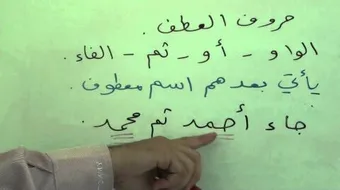 حروف العطف.
الواو - أو - ثم - الفاء.
يأتي بعدهم اسم معطوف.
جاء أحمد ثم محمد.